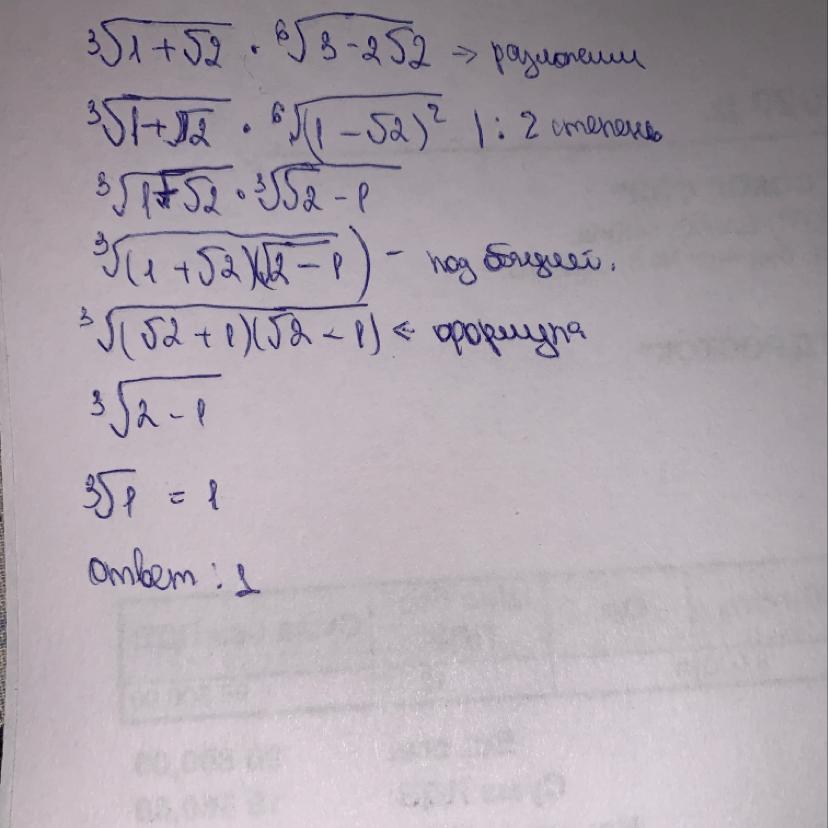 ³√(1+√2) · ⁶√(3-2√2) => разложим
³√(1+√2) · ⁶√((1-√2)²) | : 2 степень
³√(1+√2) · ³√(√2-1)
³√((1+√2)(√2-1)) - под общей.
³√((√2+1)(√2-1)) <= формула
³√(2-1)
³√1 = 1
Ответ : 1